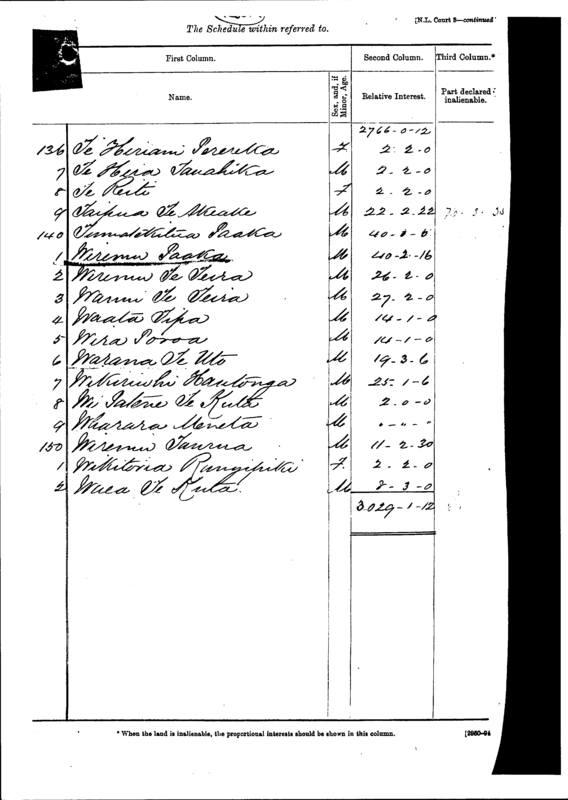 [N.L. Court 8—continued
The Schedule within referred to.
First Column. Second Column. Third Column.*
Name. Sex, and, if Minor, Age. Relative Interest. Part declared inalienable.
2766-0-12
136 Te Hiriami Perereka F 2-2-0
7 Te Hira Tauahika M 2-2-0
8 Te Reiti F 2-2-0
9 Taipua Te M 22-2-22
140 Paaka M 40-
1 Wiremu Paaka M 40-2-16
2 Wiremu Te Teira M 26-2-0
3 Te Teira M 27-2-0
4 Waata Tipa M 14-1-0
5 Wira M 14-1-0
6 Warana Te Uto M 19-3-6
7 Wikiriwhi Hautonga M 25-1-6
8 Wi Patene Te Kuta M 2-0-0
9 Wharara Meneta M
150 Wiremu Taurua M 11-2-30
1 Wikitoria Rangipiki F. 2-2-0
2 Te Kuta. M 8-3-0
3029-1-12
* When the land is inalienable, the proportional interests should be shown in this column. [2860-94